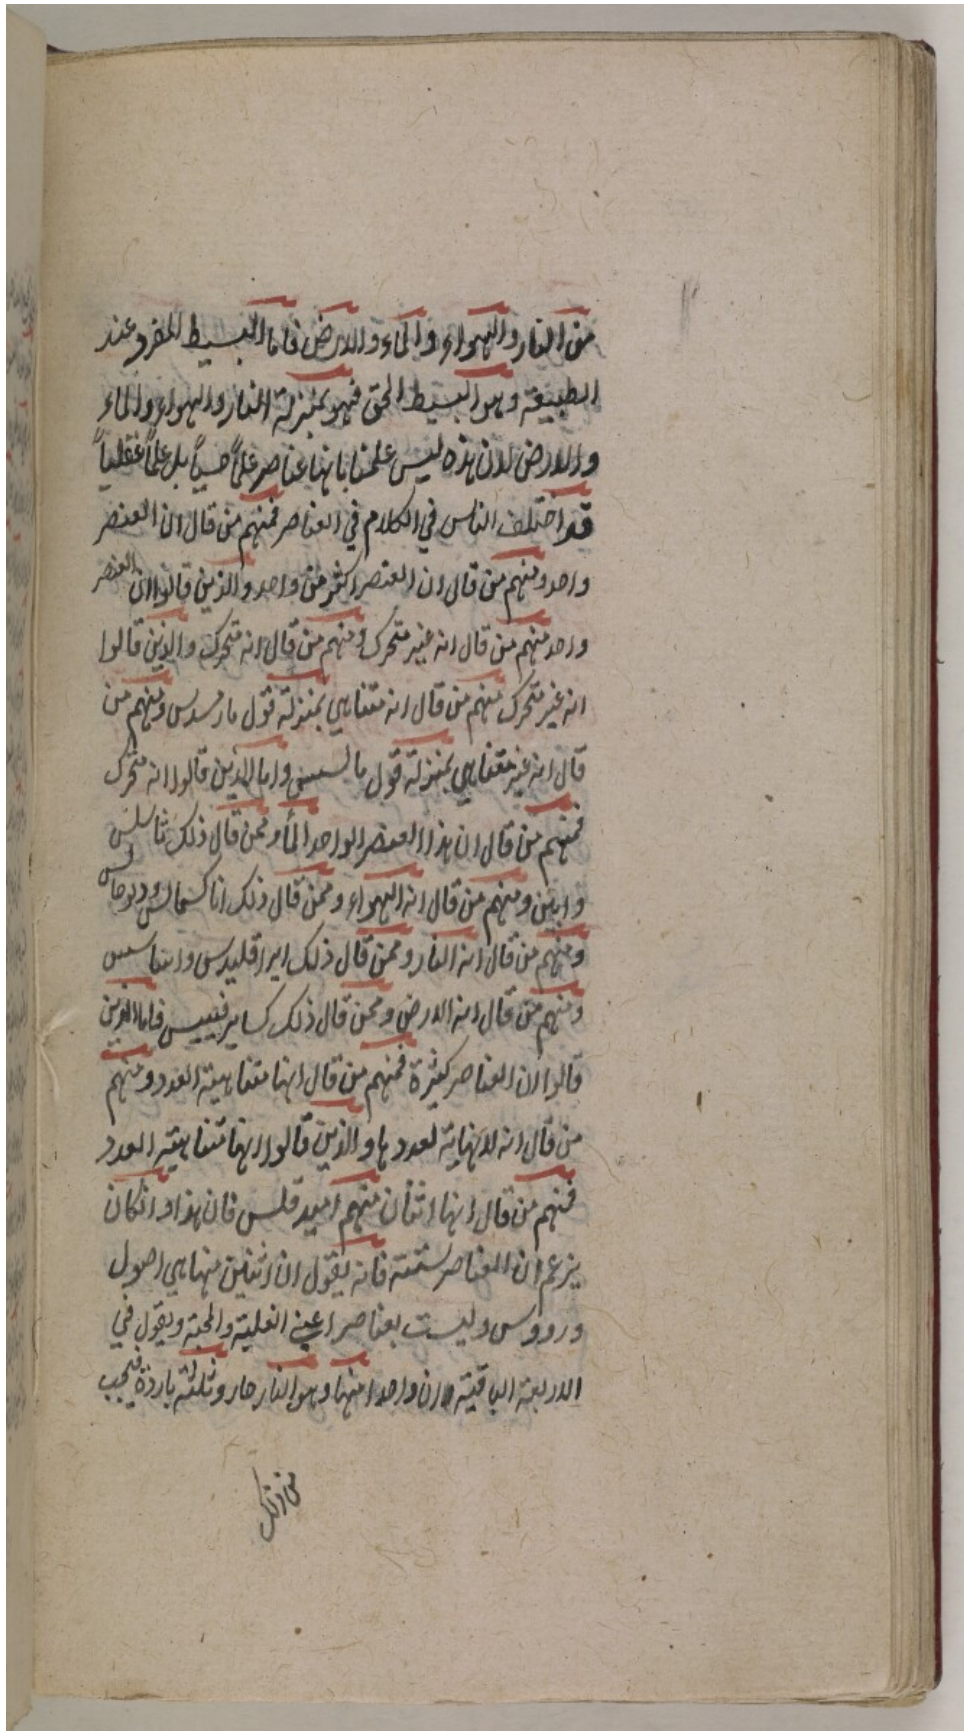 من النار والهواء والماء والارض فاما البسيط المفرد عند
الطبيعة وهو البسيط الحق فهو بمنزلة النار والهواء والماء
والارض لان هذه ليس علمنا بانها عناصر علماً حسياً بل علماً عقلياً
قد اختلف الناس في الكلام في العناصر فمنهم من قال ان العنصر
واحد ومنهم من قال ان العنصر اكثر من واحد والذين قالوا ان العنصر
واحد منهم من قال انه غير متحرك ومنهم من قال انه متحرك والذين قالوا
انه غير متحرك منهم من قال انه متناهي بمنزلة قول مارسدس ومنهم من
قال انه غير متناهي بمنزلة قول مالسيس واما الذين قالوا انه متحرك
فمنهم من قال ان هذا العنصر الواحد الماء وممن قال ذلك ثاسلس
وابين ومنهم من قال انه الهواء وممن قال ذلك اناكسمالس وديوجانس
ومنهم من قال انه النار وممن قال ذلك ايراقليدس واباسيس
ومنهم من قال انه الارض وممن قال ذلك كسايرفنييس فاما الذين
قالوا ان العناصر كثيرة فمنهم من قال انها متناهية العدد ومنهم
من قال انه لانهاية لعددها والذين قالوا انها متناهية العدد
فمنهم من قال انها اثنان منهم اميدقلس فان هذا وان كان
يزعم ان العناصر ستته فانه يقول ان اثنين منها هي اصول
ورووس وليست بعناصر اعني الغلبة والمحبة ويقول في
الاربعة الباقية وان واحدا منها وهو النار حار وثلثة باردة فيجب
من ذلك